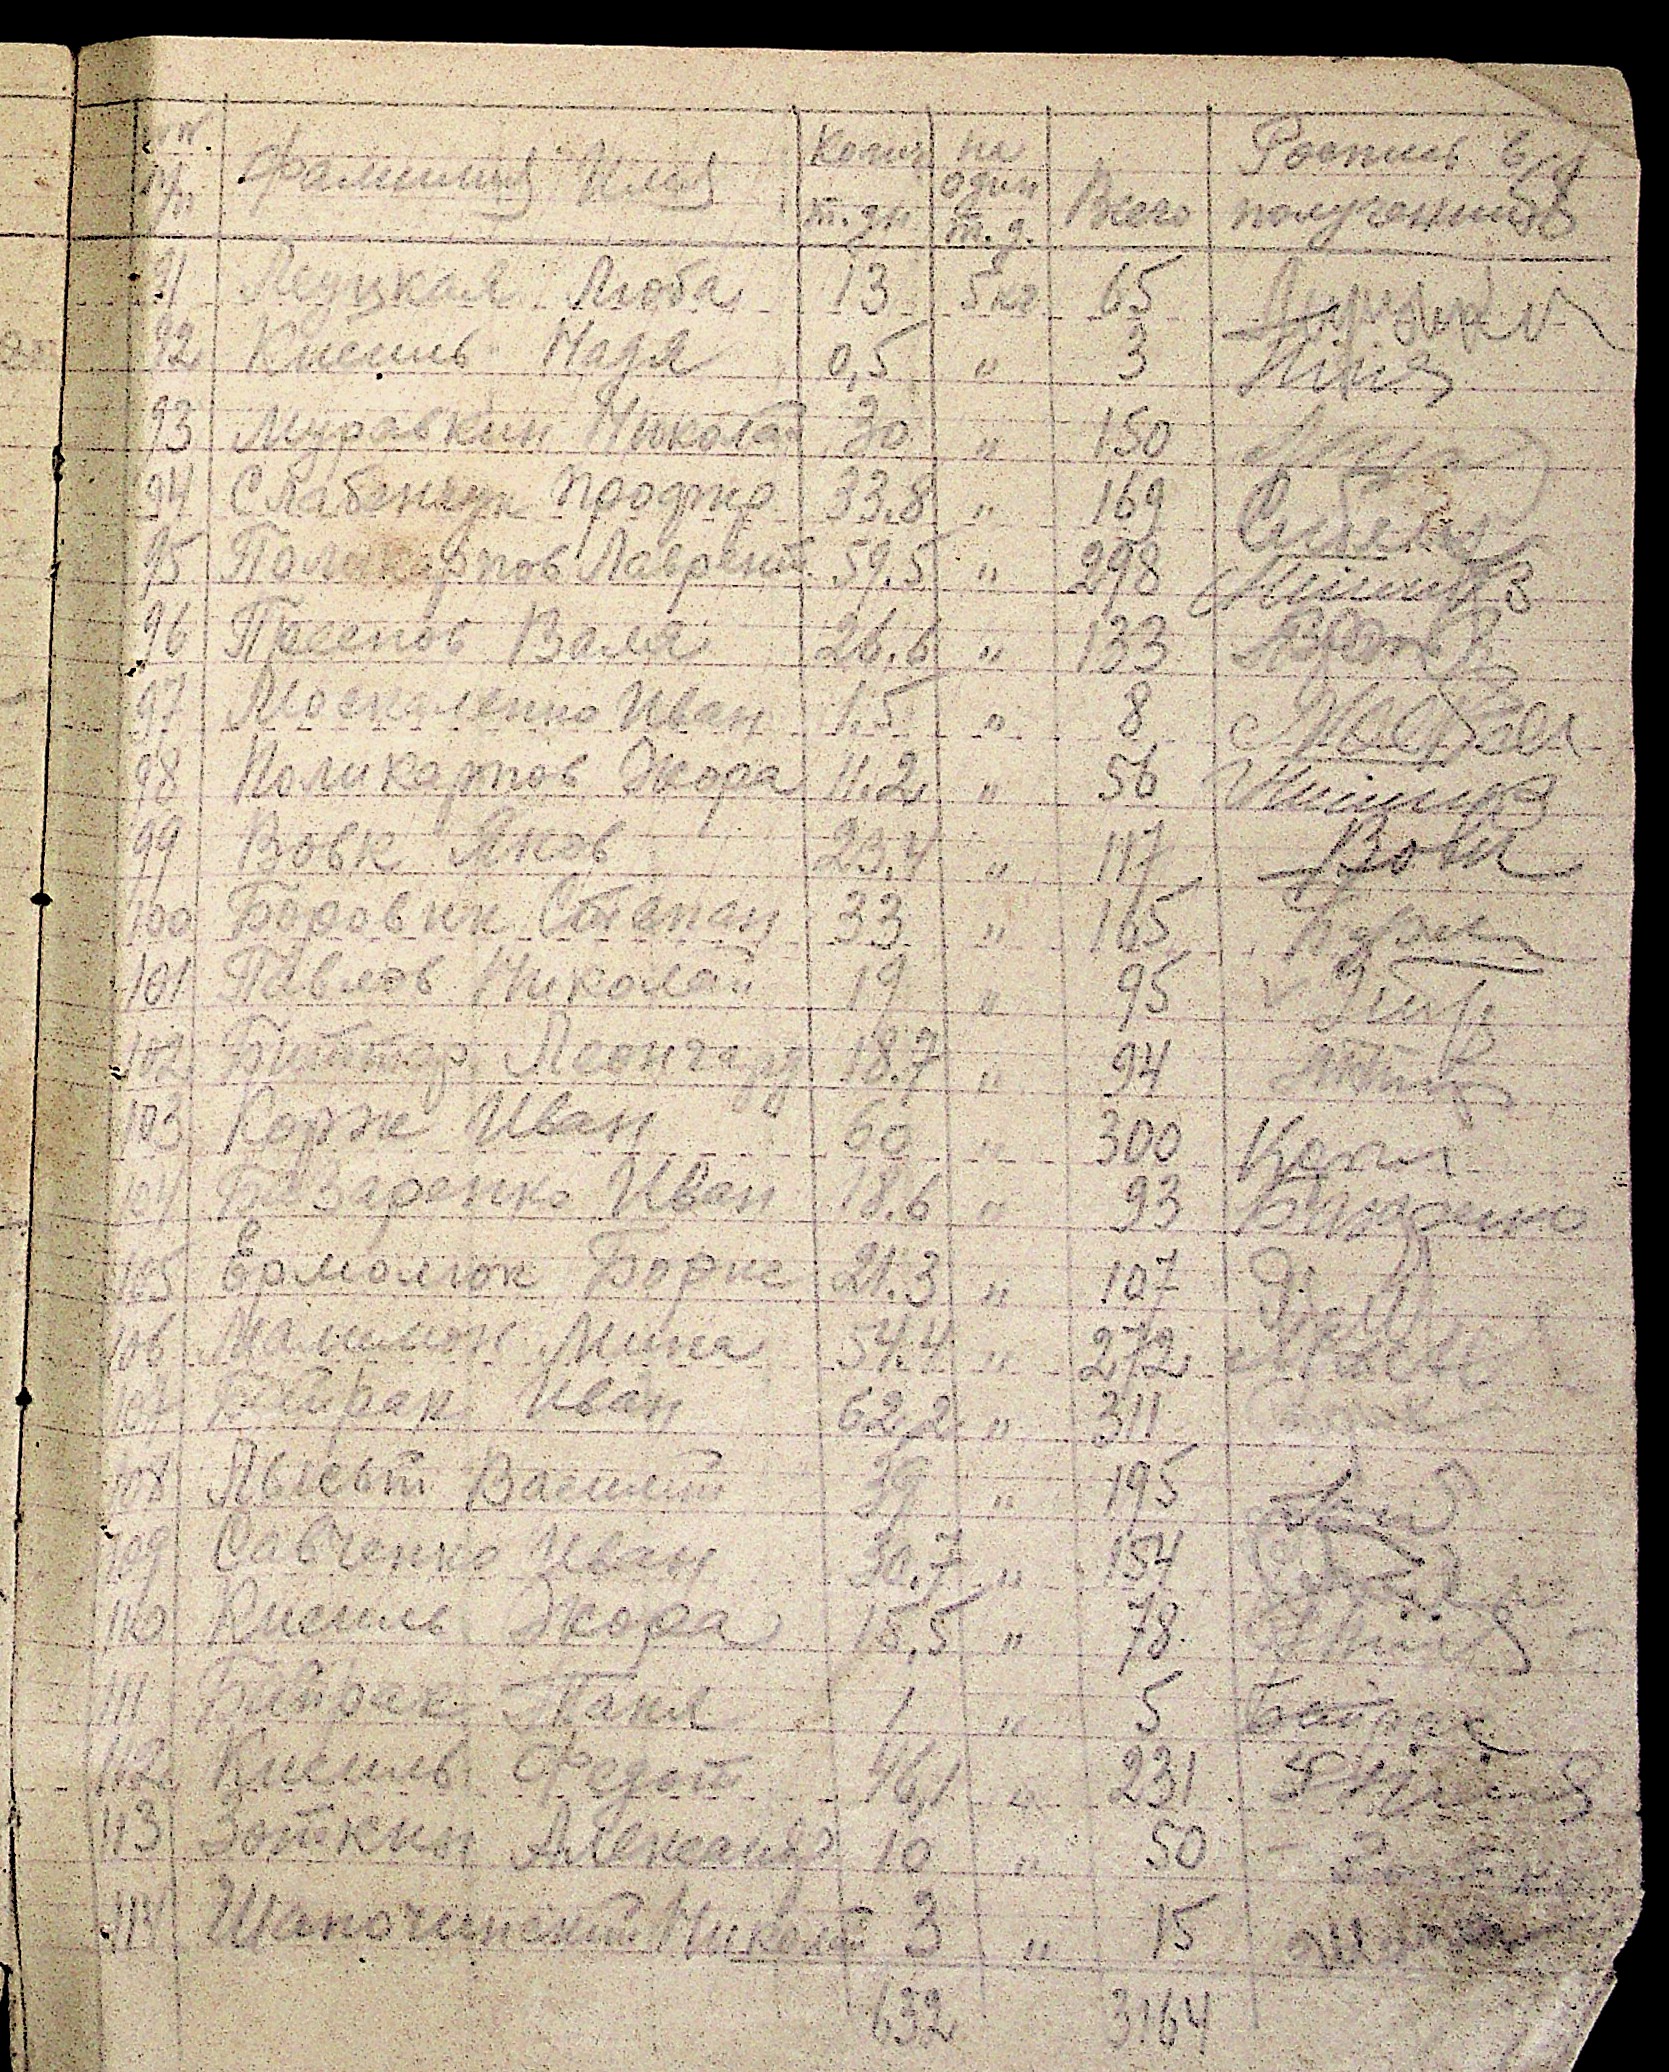 № Фамилия Имя Колич. т.дн. на один т.д. Всего Роспись в/д получении
91 Луцкая Люба 13 5 кг 65
92 Кисиль Надя 0,5 " 3
93 Муравкин Николай 30 " 150
94 Слабенчук 33.8 " 169
95 Поликарпов Лаврент. 59.5 " 298
96 Валя 26.6 " 133
97 Москаленко Иван 1.5 " 8
98 Поликарпов Жора 11.2 " 56
99 Вовк Яков 23.4 " 117 Вовк
100 Боровик Степан 33 " 165
101 Павлов Николай 19 " 95
102 Леонгард 18.7 " 94
103 Корж Иван 60 " 300 Корж
104 Базаренко Иван 18.6 " 93 Базаренко
105 Ермолюк Борис 21.3 " 107
106 Малимон Мина 54.4 " 272
107 Байрак Иван 62.2 " 311
108 Лысый Василий 39 " 195
109 Савченко Иван 30.7 " 154
110 Кисиль Жора 15,5 " 78
111 Байрак Таня 1 " 5 Байрак
112 Кисиль Федот 46,1 " 231
113 Зоткин Александр 10 " 50
114 Николай 3 " 15
632 3164